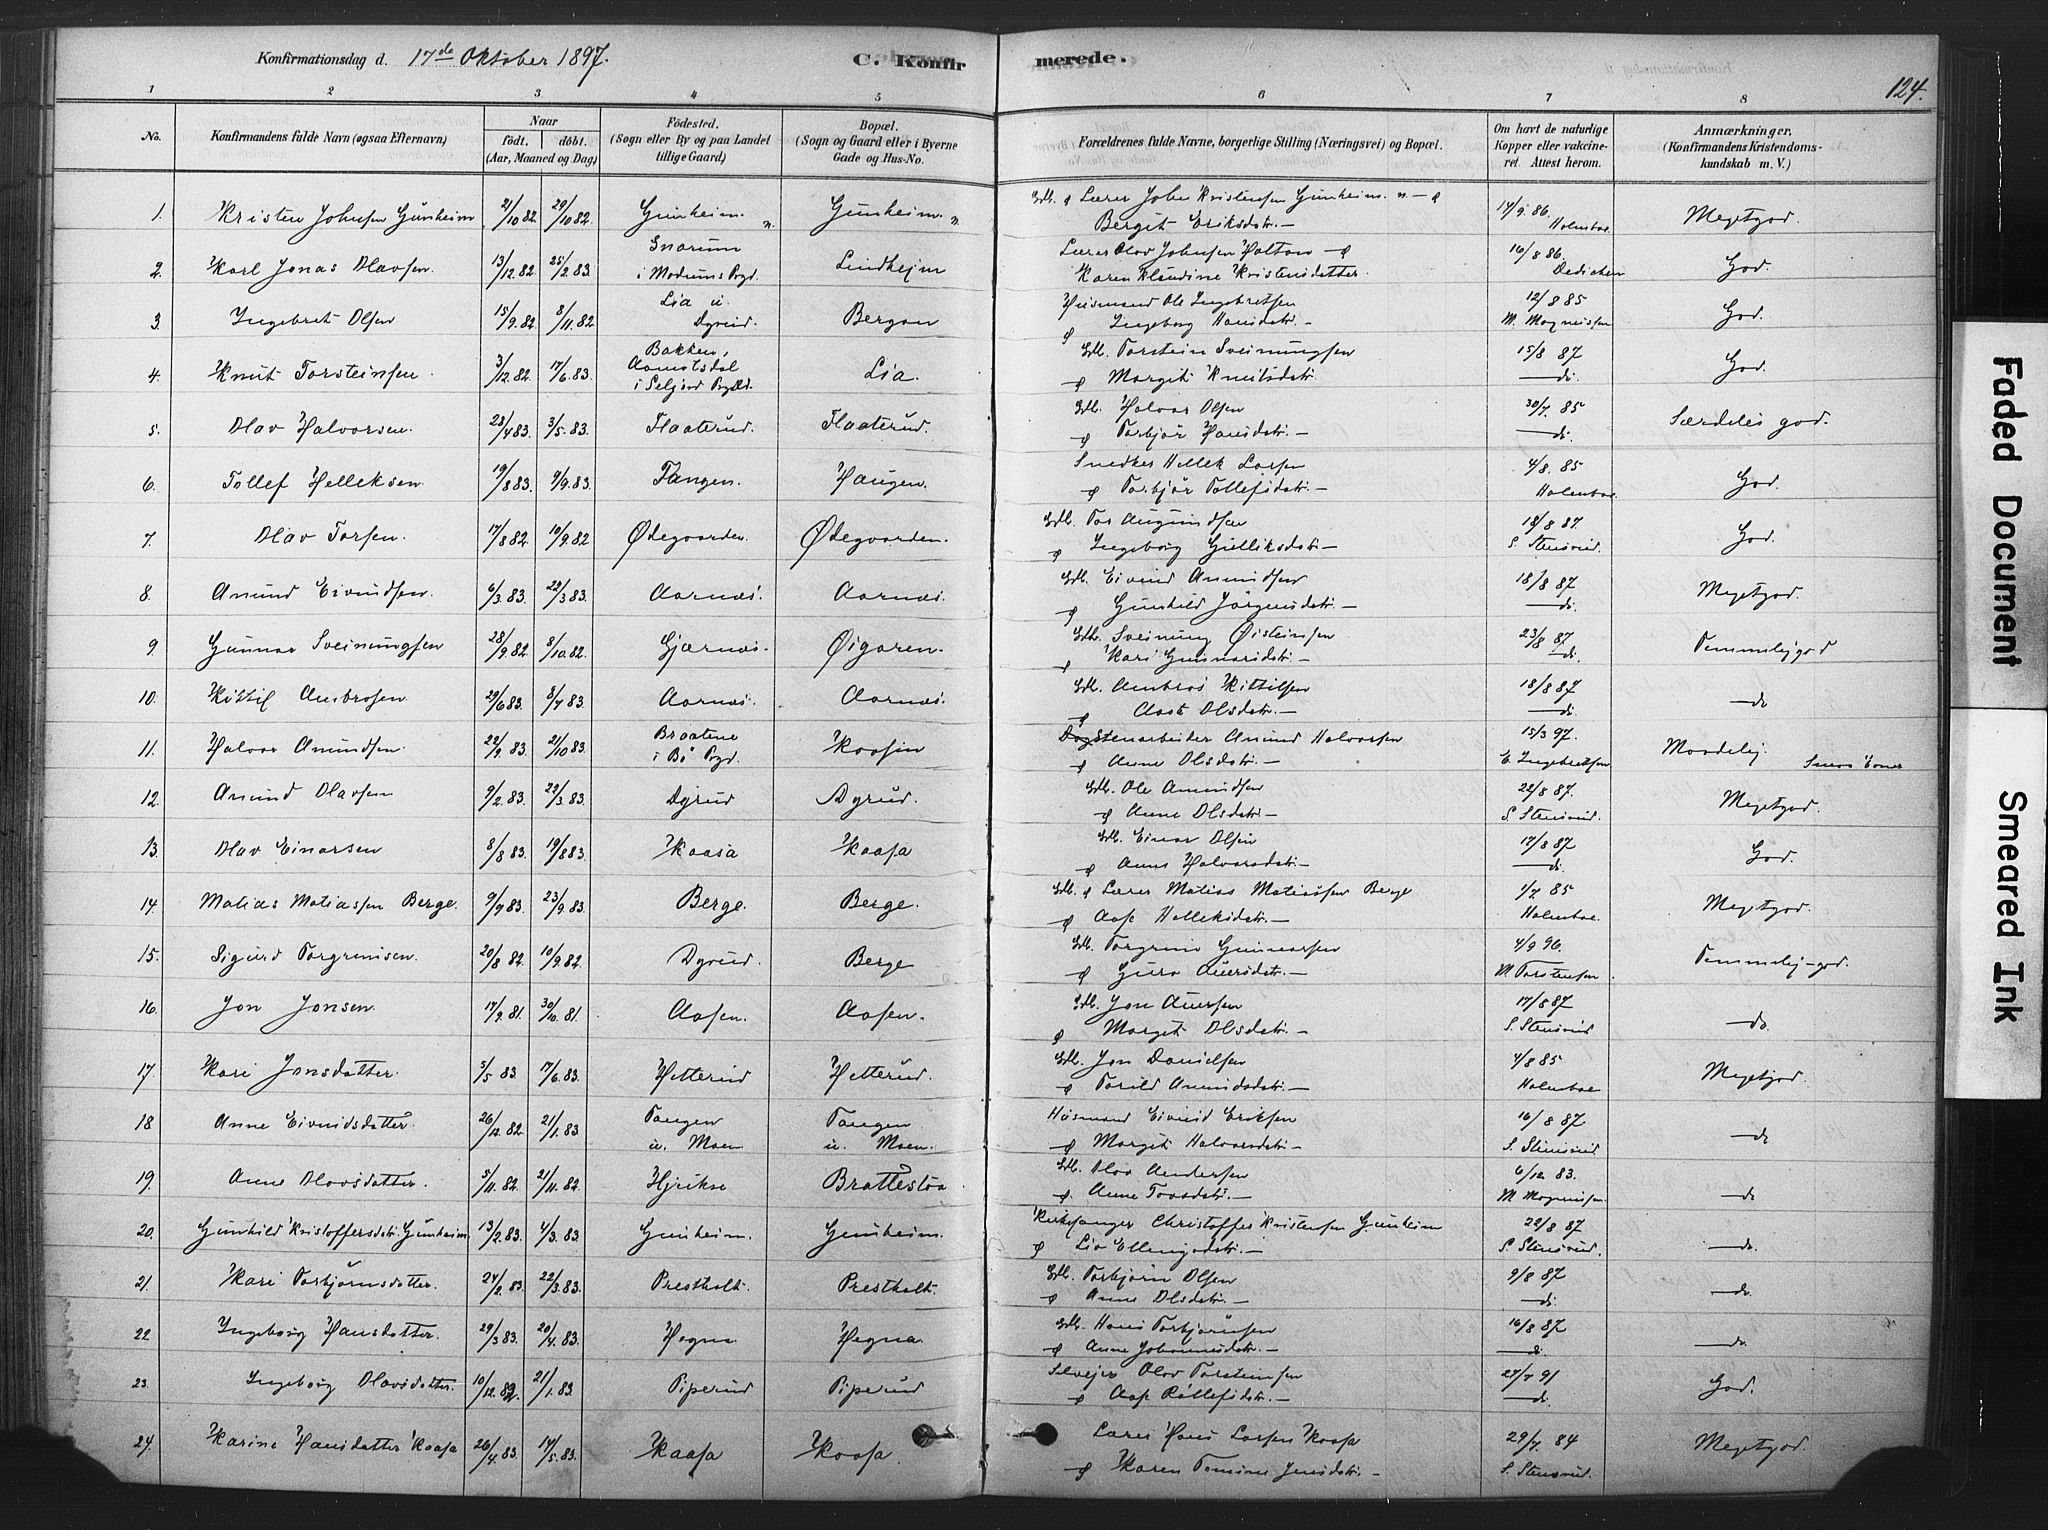 Konfirmationsdag d. 17de Oktober 1897. C. Konfirmerede. 124.
1 2 3 4 5 6 7 8
No. Konfirmandens fulde Navn (ogsaa Efternavn) Naar født. døbt. (Aar, Maaned og Dag) Fødested. (Sogn eller By og paa Landet tillige Gaard) Bopæl. (Sogn og Gaard eller i Byerne Gade og Hus-No. Forældrenes fulde Navne, borgerlige Stilling (Næringsvei) og Bopæl. Om havt de naturlige Kopper eller vaccineret. Attest herom. Anmærkninger. (Konfirmandens Kristendomskundskab m. V.)
1. Kristen Johnsen Gunheim 21/10 82 29/10 82. Gunheim. n. Gunheim. n. Gdb. & Lærer John Kristensen Gunheim. n. — &
Bergit Eriksdatr. — 14/9. 86. Holmboe Megetgod.
2. Karl Jonas Olavsen. 13/12. 82. 25/2. 83. Snarum i Modums Prgd. Lindheim Lærer Olav Johnsen Haltan — &
Karen Klaudine Kristensdatter. 16/8 86. Dedichen God.
3. Ingebret Olsen 15/9. 82. 8/11. 82 Lia u. Dyrud. Bergan Husmand Ole Ingebretsen
& Ingeborg Hansdatr. — 12/8 85 M. Magnussen God.
4. Knut Torsteinsen. 3/12. 82. 17/6. 83. Bakken, Aamotsdal i Seljord Prgld. Lia. Gdb. Torstein Sveinungsen
& Margit Knutsdatr. 15/8 87 — do. God.
5. Olav Halvorsen. 28/4 83. 3/5. 83. Flaaterud. Flaaterud. Gdb. Halvor Olsen
& Torbjør Hansdatr. — 30/7. 85 — do. Særdeles god.
6. Tollef Helleksen. 19/8 83. 9/9. 83. Tangen. Haugen. Snedker Hellek Larsen
& Torbjør Tollefsdatr. — 4/8. 85 Holmboe. God.
7. Olav Torsen. 17/8 82 10/9. 82 Ødegaarden. Ødegaarden. Gdb. Tor Augundsen
& Ingeborg Gulliksdatr — 18/8 87. S. Stensrud. God.
8. Amund Eivindsen. 6/3. 83. 22/3 83. Aarnæs. Aarnæs. Gdb. Eivind Amundsen
& Gunhild Jørgensdatr. — 18/8 87 — do. Megetgod.
9. Gunnar Sveinungsen 28/9. 82 8/10. 82. Gjernæs. Øigaren. Gdb. Sveinung Øisteinsen
& Kari Gunnarsdatr. — 23/8 87. do. Temmeligod
10. Kittil Ambrosen 29/6 83. 8/7 83. Aarnæs. Aarnæs. Gdb. Ambros Kittilsen
& Aaste Olsdatr. — 18/8 87 — do. — do
11. Halvor Amundsen. 22/9. 83. 21/10 83. Braatene i Bø Prgd. Kaasin Stenarbeider Amund Halvorsen
& Anne Olsdatr. — 15/3 97. E. Ingebretsen Maadelig.
12. Amund Olavsen 9/2. 83. 22/3. 83. Dyrud Dyrud. Gdb. Ole Amundsen
& Anne Olsdatr. — 22/8 87. S. Stensrud. Megetgod.
13. Olav Einarsen 8/8 83. 19/8 83. Kaasa Kaasa Gdb. Einar Olsen
& Anne Halvorsdatr. — 17/8 87 — do. God.
14. Matias Matiassen Berge. 9/9 83. 23/9. 83. Berge. Berge. Gdb. & Lærer Matias Matiassen Berge
& Aase Helleksdatr. — 1/7. 85 Holmboe. Megetgod.
15. Sigurd Torgrimsen. 20/8 82. 10/9. 82. Dyrud. Berge Gdb. Torgrim Gunnarsen
& Guro Auersdatr. — 4/9 96. M Torstensen. Temmelig-god.
16. Jon Jonsen. 17/9. 81. 30/10. 81. Aasen. Aasen. Gdb. Jon Auersen
& Margit Olsdatr. — 17/8 87 S. Stensrud — do.
17. Kari Jonsdatter. 5/5 83. 17/6. 83. Hetterud Hetterud. Gdb. Jon Danielsen
& Torild Amundsdatr. — 4/8 85 Holmboe Megetgod.
18 Anne Eivindsdatter. 26/12. 82. 21/1. 83. Tangen u. Moen Tangen u. Moen. Husmand Eivind Eriksen
& Margit Halvorsdatr. — 16/8 87 S. Stensrud — do
19. Anne Olavsdatter. 5/11. 82. 21/11. 82. Hjrikse Brattestaa. Gdb. Olav Andersen
& Anne Toresdatr. — 6/12 83. M Magnussen. — do
20. Gunhild Kristoffersdatr. Gunheim. 13/2. 83. 4/3. 83. Gunheim. Gunheim. Kirkesanger Christoffer Kristensen Gunheim
& Liv Ellingsdatr. — 22/8 87 S. Stensrud. — do.
21. Kari Torbjørnsdatter. 24/2. 83. 22/3. 83. Prestholt. Prestholt. Gdb. Torbjørn Olsen
& Anne Olsdatr. — 9/8 87 — do. — do.
22. Ingeborg Hansdatter. 29/3 83. 20/4. 83. Hegna. Hegna. Gdb. Hans Torbjørnsen
& Anne Johannesdatr. — 16/8 87 do. — do.
23. Ingeborg Olavsdatter. 10/12. 82. 21/1. 83. Piperud Piperud Selveier Olav Torsteinsen
& Aase Rollefsdatr. — 27/7 91 — do. God.
24. Karine Hansdatter Kaasa 26/4. 83. 14/5. 83. Kaasa Kaasa. Lærer Hans Larsen Kaasa
& Karen Tomine Jensdatr. — 29/7. 84 S. Stensrud. Megetgod.
Faded Document
Smeared Ink